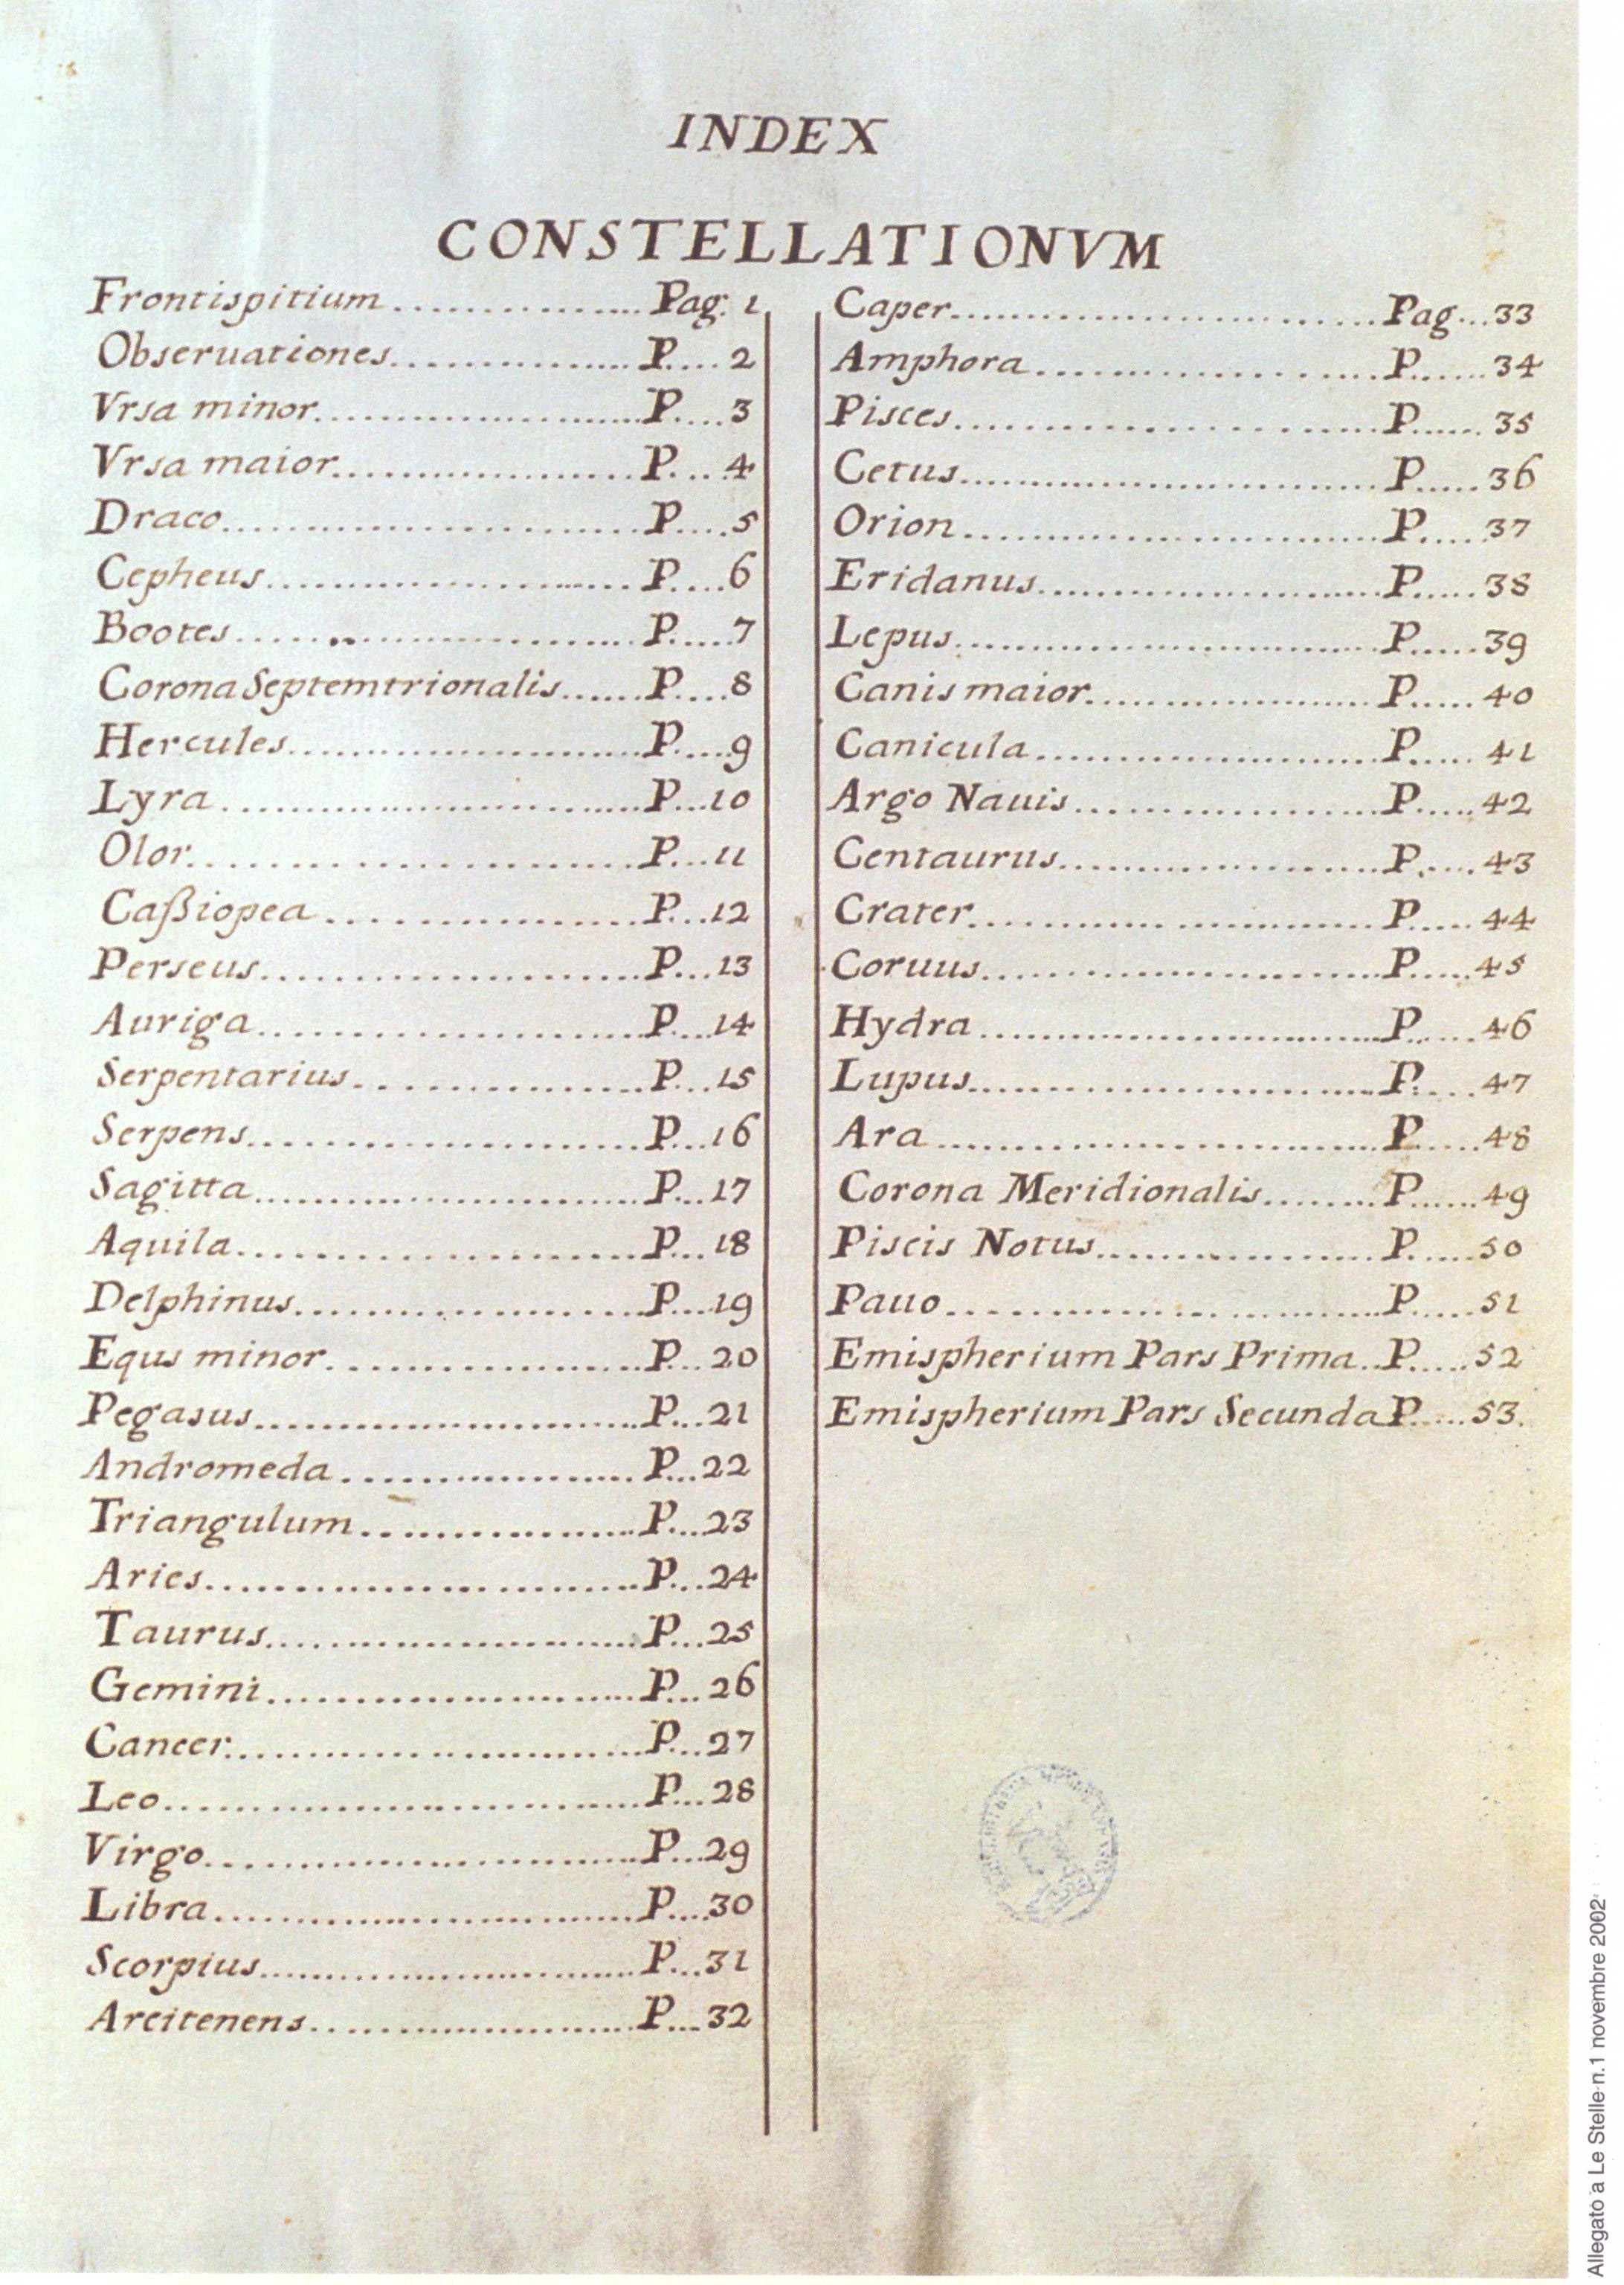 INDEX
CONSTELLATIONVM
Frontispitium............... Pag. 1
Obseruationes............... P.... 2
Vrsa minor..................... P.... 3
Vrsa maior.................... P.... 4
Draco........................... P.... 5
Cepheus........................ P.... 6
Bootes.......................... P..... 7
Corona Septemtrionalis...... P.... 8
Hercules........................ P.... 9
Lyra............................. P... 10
Olor............................. P... 11
Caßiopea....................... P... 12
Perseus......................... P... 13
Auriga.......................... P... 14
Serpentarius................... P... 15
Serpens......................... P... 16
Sagitta.......................... P... 17
Aquila........................... P... 18
Delphinus...................... P... 19
Equs minor.................... P... 20
Pegasus......................... P... 21
Andromeda.................... P... 22
Triangulum.................... P... 23
Aries............................ P... 24
Taurus.......................... P... 25
Gemini.......................... P... 26
Cancer.......................... P... 27
Leo.............................. P... 28
Virgo............................ P... 29
Libra............................ P.... 30
Scorpius........................ P... 31
Arcitenens..................... P... 32
Caper........................... Pag... 33
Amphora....................... P...... 34
Pisces........................... P...... 35
Cetus............................ P..... 36
Orion............................ P..... 37
Eridanus........................ P..... 38
Lepus............................ P..... 39
Canis maior.................... P..... 40
Canicula........................ P..... 41
Argo Nauis..................... P..... 42
Centaurus...................... P..... 43
Crater........................... P..... 44
Coruus.......................... P..... 45
Hydra........................... P..... 46
Lupus............................ P..... 47
Ara............................... P..... 48
Corona Meridionalis........ P...... 49
Piscis Notus.................... P..... 50
Pauo............................. P..... 51
Emispherium Pars Prima.. P..... 52
Emispherium Pars Secunda P..... 53.
Allegato a Le Stelle n.1 novembre 2002